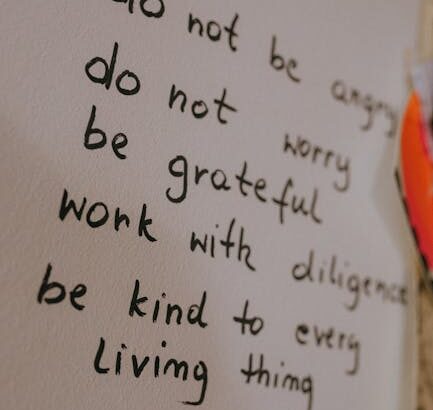 do not be angry
do not worry
be grateful
work with diligence
be kind to every
living thing